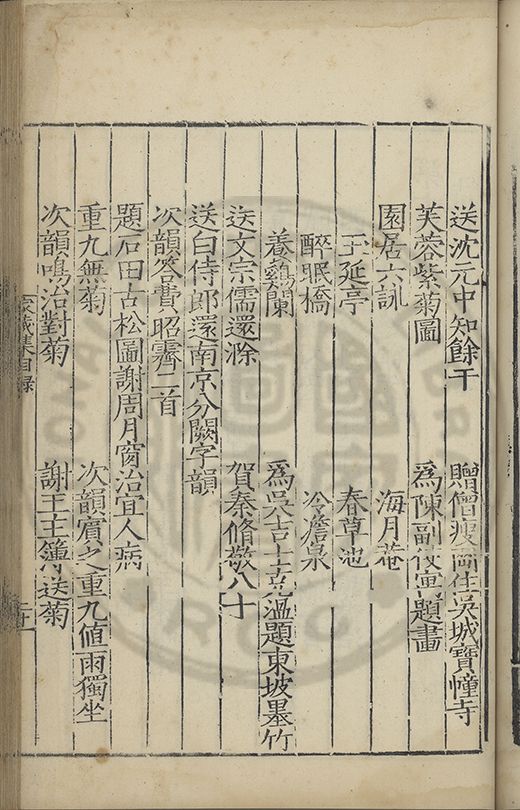 送沈元中知餘干　贈僧瘦雨住吳城寶幢寺
芙蓉紫菊圖　爲陳副使寅題畫
園居六詠　海月菴
玉延亭　春草池
醉眠橋　冷澹泉
養鷄闌　爲吳吉士克溫題東坡墨竹
送文宗儒還滁　賀秦脩敬八十
送白侍郎還南京分闕字韻
次韻答費昭霽二首
題石田古松圖謝周月窗治宜人病
重九無菊　次韻賓之重九値雨獨坐
次韻鳴治對菊　謝王主簿送菊
家藏集目錄　二十一